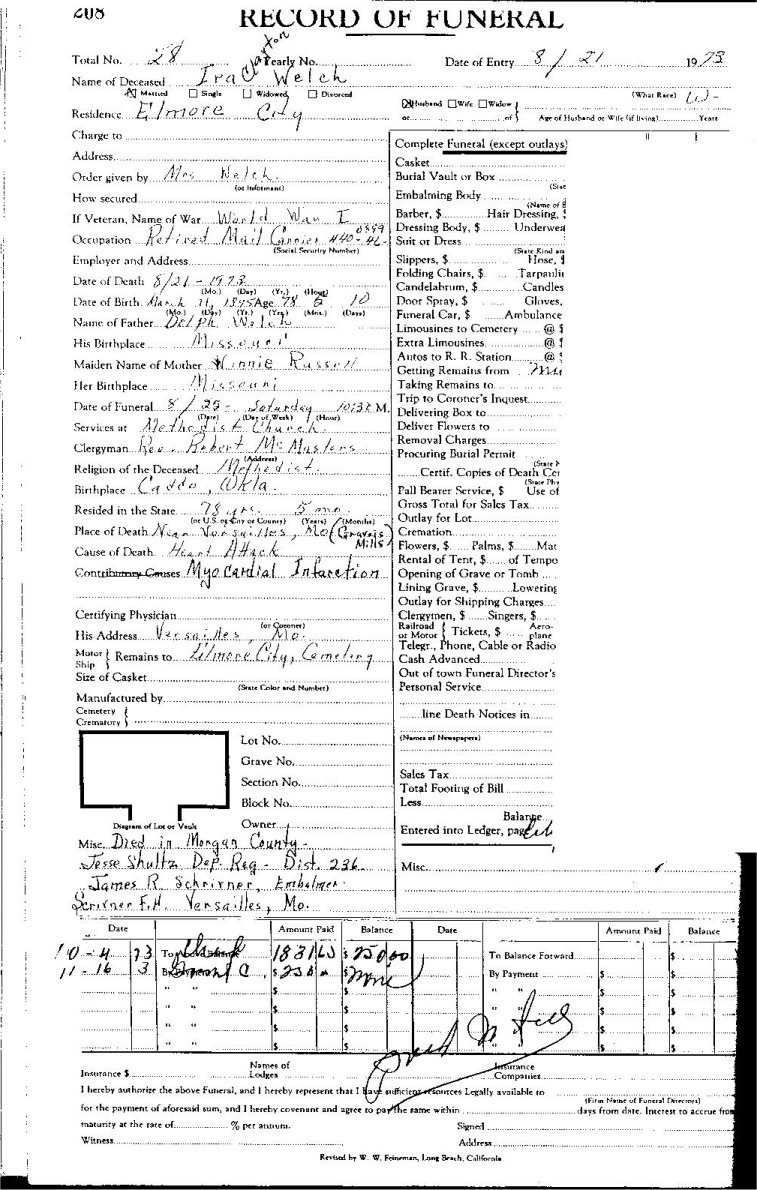 208
RECORD OF FUNERAL
Clayton
Total No. 28 Yearly No. Date of Entry 8 / 21 19 73
Name of Deceased Ira C Welch
Married Single Widowed Divorced
Husband Wife Widow
(What Race) W -
Residence Elmore City
or of Age of Husband or Wife (if living) Years
Charge to
Address
Order given by Mrs Welch
(or Informant)
How secured
If Veteran, Name of War World War I
Occupation Retired Mail Carrier 440-46-0399
(Social Security Number)
Employer and Address
Date of Death 8/21 - 1973
(Mo.) (Day) (Yr.) (Hour)
Date of Birth March 11, 1895 Age 78 5 10
(Mo.) (Day) (Yr.) (Yrs) (Mos.) (Days)
Name of Father Delph Welch
His Birthplace Missouri
Maiden Name of Mother Winnie Russell
Her Birthplace Missouri
Date of Funeral 8 / 25 - Saturday 10:30 M.
(Date) (Day of Week) (Hour)
Services at Methodist Church
Clergyman Rev. Robert McMasters
(Address)
Religion of the Deceased Methodist
Birthplace Caddo, Okla.
Resided in the State 78 yrs. 5 mo.
(or U.S. or City or County) (Years) (Months)
Place of Death Near Versailles, Mo (Gravois Mills)
Cause of Death Heart Attack
Contributory Causes Myocardial Infarction
Certifying Physician
(or Coroner)
His Address Versailles, Mo.
Motor Ship Remains to Elmore City, Cemetery
Size of Casket
(State Color and Number)
Manufactured by
Cemetery
Crematory
Lot No.
Grave No.
Section No.
Block No.
Owner
Diagram of Lot or Vault
Misc. Died in Morgan County -
Jesse Shultz Dep. Reg - Dist. 236
James R. Schrivner, Embalmer
Scrivner F.H. Versailles, Mo.
Complete Funeral (except outlays)
Casket
Burial Vault or Box
(State
Embalming Body
(Name of E
Barber, $ Hair Dressing, $
Dressing Body, $ Underwea
Suit or Dress
(State Kind an
Slippers, $ Hose, $
Folding Chairs, $ Tarpaulin
Candelabrum, $ Candles
Door Spray, $ Gloves,
Funeral Car, $ Ambulance
Limousines to Cemetery @ $
Extra Limousines @ $
Autos to R. R. Station @ $
Getting Remains from
Taking Remains to
Trip to Coroner's Inquest
Delivering Box to
Deliver Flowers to
Removal Charges
Procuring Burial Permit
(State N
Certif. Copies of Death Cer
(State Phy
Pall Bearer Service, $ Use of
Gross Total for Sales Tax
Outlay for Lot
Cremation
Flowers, $ Palms, $ Mat
Rental of Tent, $ of Tempo
Opening of Grave or Tomb
Lining Grave, $ Lowering
Outlay for Shipping Charges
Clergymen, $ Singers, $
Railroad or Motor Tickets, $ Aero-plane
Telegr., Phone, Cable or Radio
Cash Advanced
Out of town Funeral Director's
Personal Service
line Death Notices in
(Names of Newspapers)
Sales Tax
Total Footing of Bill
Less
Balance
Entered into Ledger, page
Misc.
Date Amount Paid Balance Date Amount Paid Balance
10 - 4 73 To 1831 65 $ 250 00 To Balance Forward $
11 - 16 3 By $ 250 $ None By Payment $ $
" " $ $ " " $ $
" " $ $ " $ $
" " $ $ $ $
" " $ $ " $ $
Paid in full
Insurance $ Names of Lodges Insurance Companies
I hereby authorize the above Funeral, and I hereby represent that I have sufficient resources Legally available to
(Firm Name of Funeral Directors)
for the payment of aforesaid sum, and I hereby covenant and agree to pay the same within days from date. Interest to accrue from
maturity at the rate of % per annum. Signed
Witness Address
Revised by W. W. Feineman, Long Beach, California